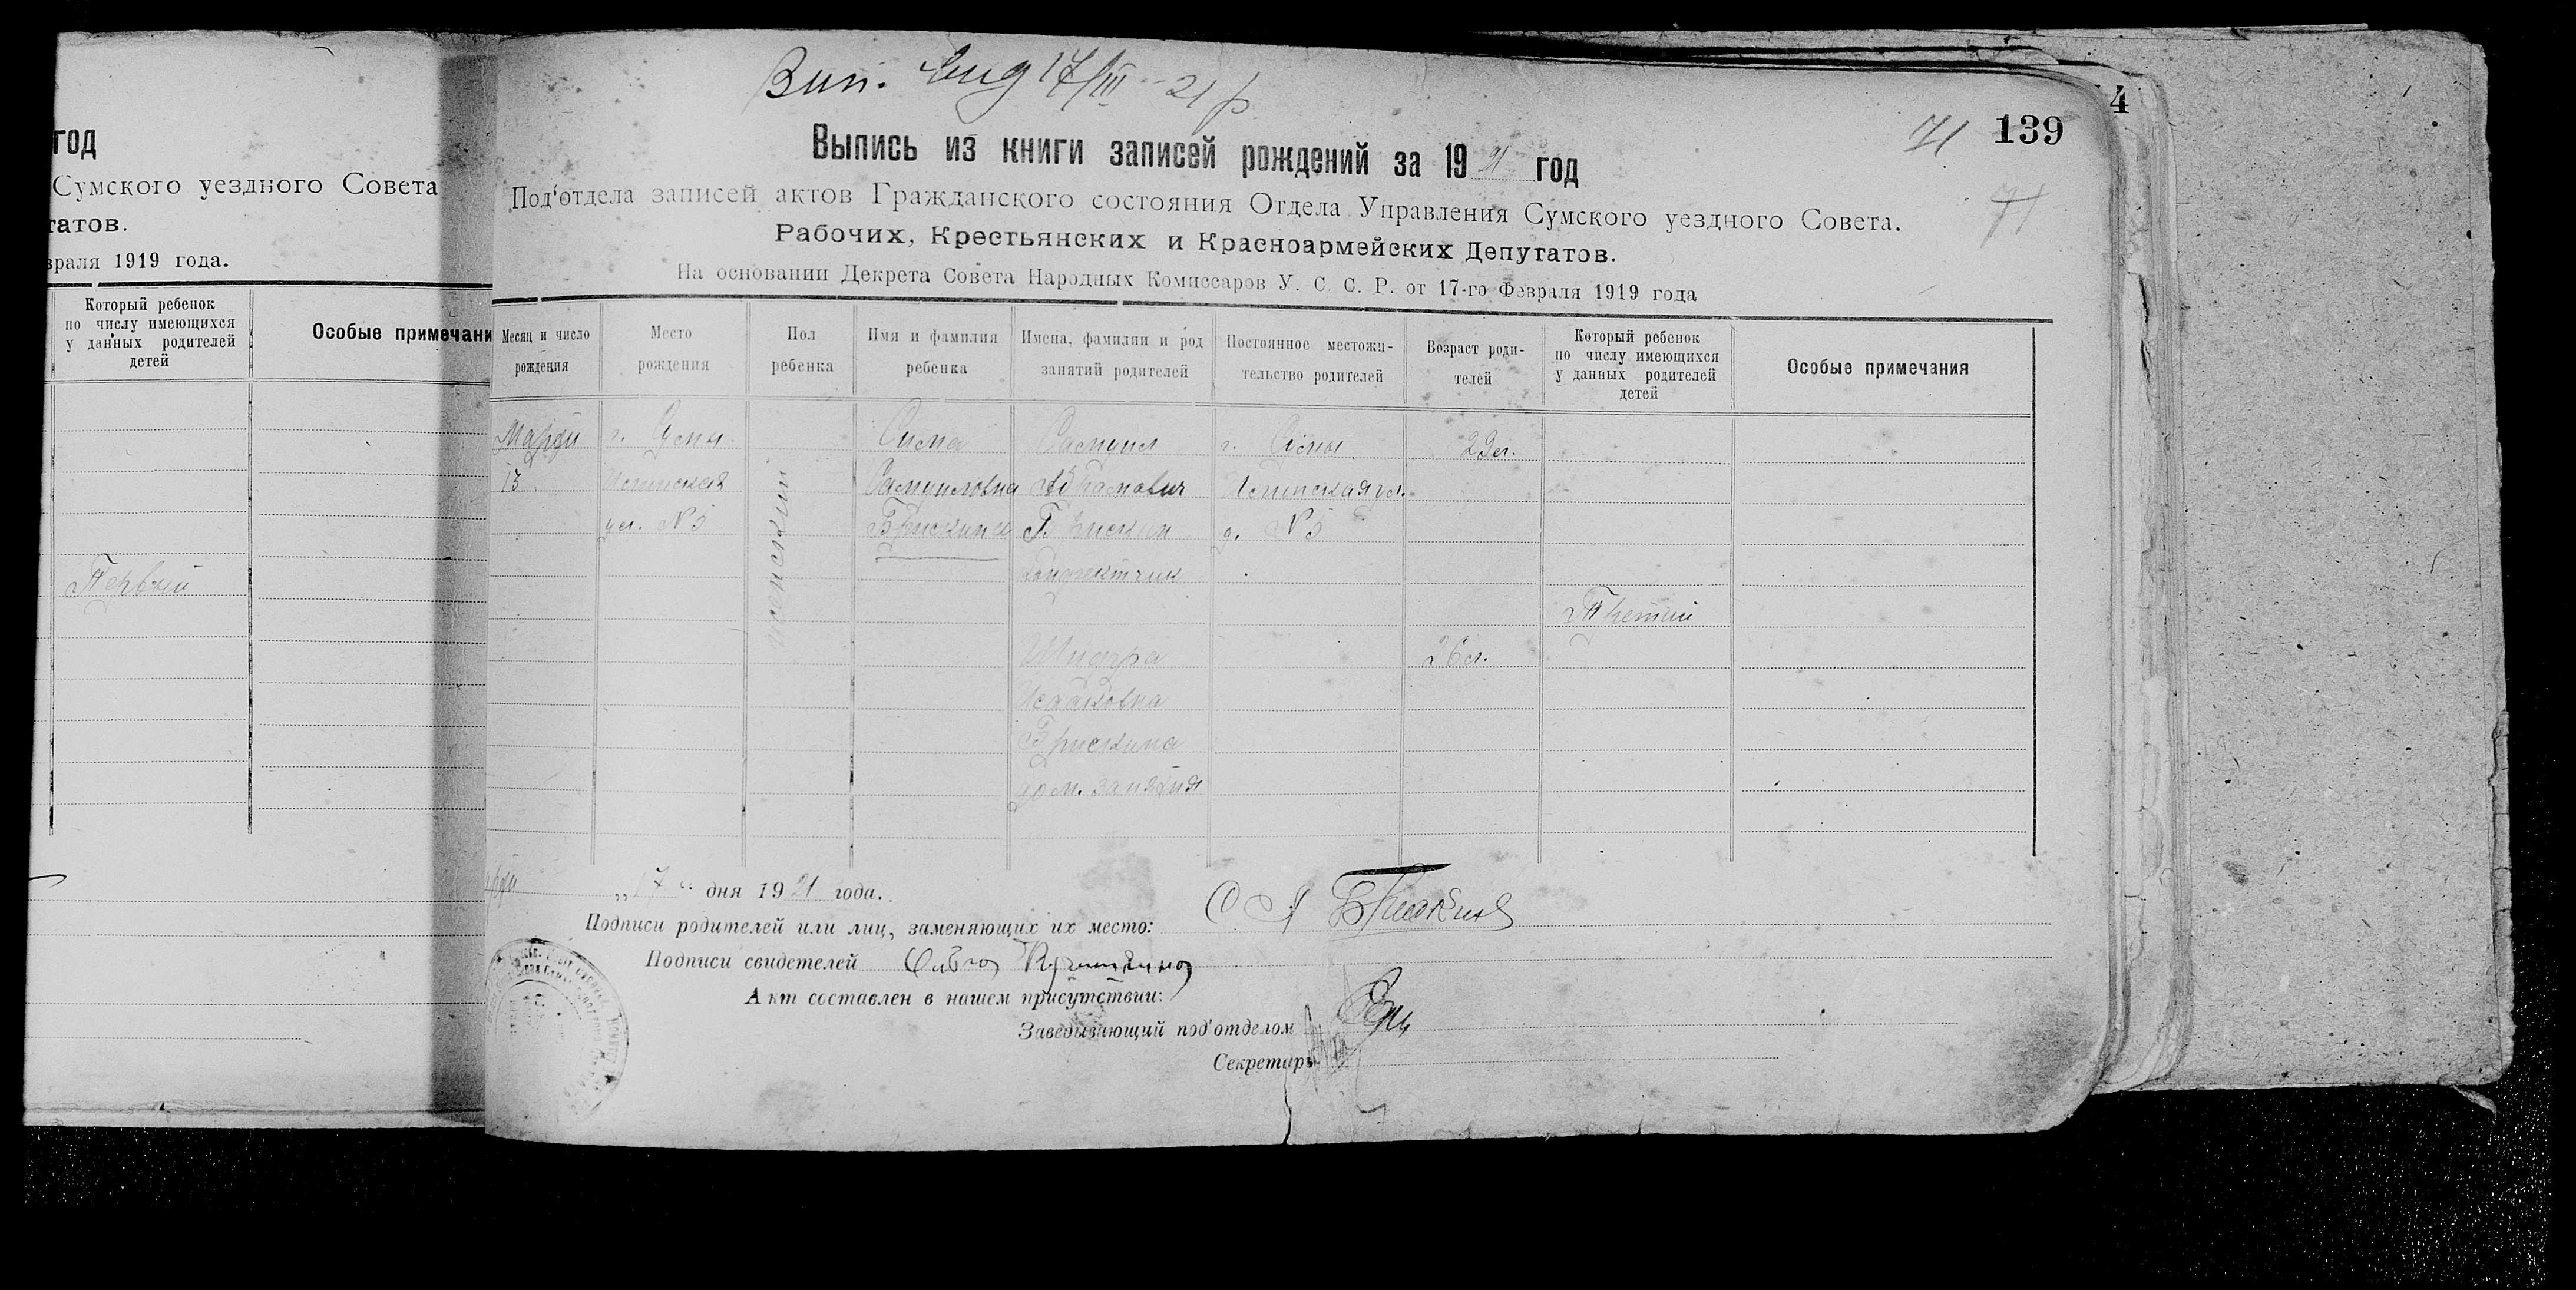 год
Сумского уездного Совета
татов.
враля 1919 года.
Который ребенок
по числу имеющихся
у данных родителей
детей
Особые примечани
Первый
Вип. 17/III - 21 р
71
139
4
Выпись из книги записей рождений за 1921 год
71
Под‘отдела записей актов Гражданского состояния Отдела Управления Сумского уездного Совета.
Рабочих, Крестьянских и Красноармейских Депутатов.
На основании Декрета Совета Народных Комиссаров У. С. С. Р. от 17-го Февраля 1919 года
Месяц и число
рождения
Место
рождения
Пол
ребенка
Имя и фамилия
ребенка
Имена, фамилии и род
занятий родителей
Постоянное местожи-
тельство родителей
Возраст роди-
телей
Который ребенок
по числу имеющихся
у данных родителей
детей
Особые примечания
13
г. Сумы
ул. № 5
женский
Сима
Самуиловна
Брискина
Самуил
Абрамович
Брискин
г. Сумы
ул.
д. № 5
29 л.
Третий
Исааковна
Брискина
дом. занятия
26 л.
„17“ дня 1921 года.
Подписи родителей или лиц, заменяющих их место: С А Брискин
Подписи свидетелей
Акт составлен в нашем присутствии:
Заведывающий под‘отделом
Секретарь